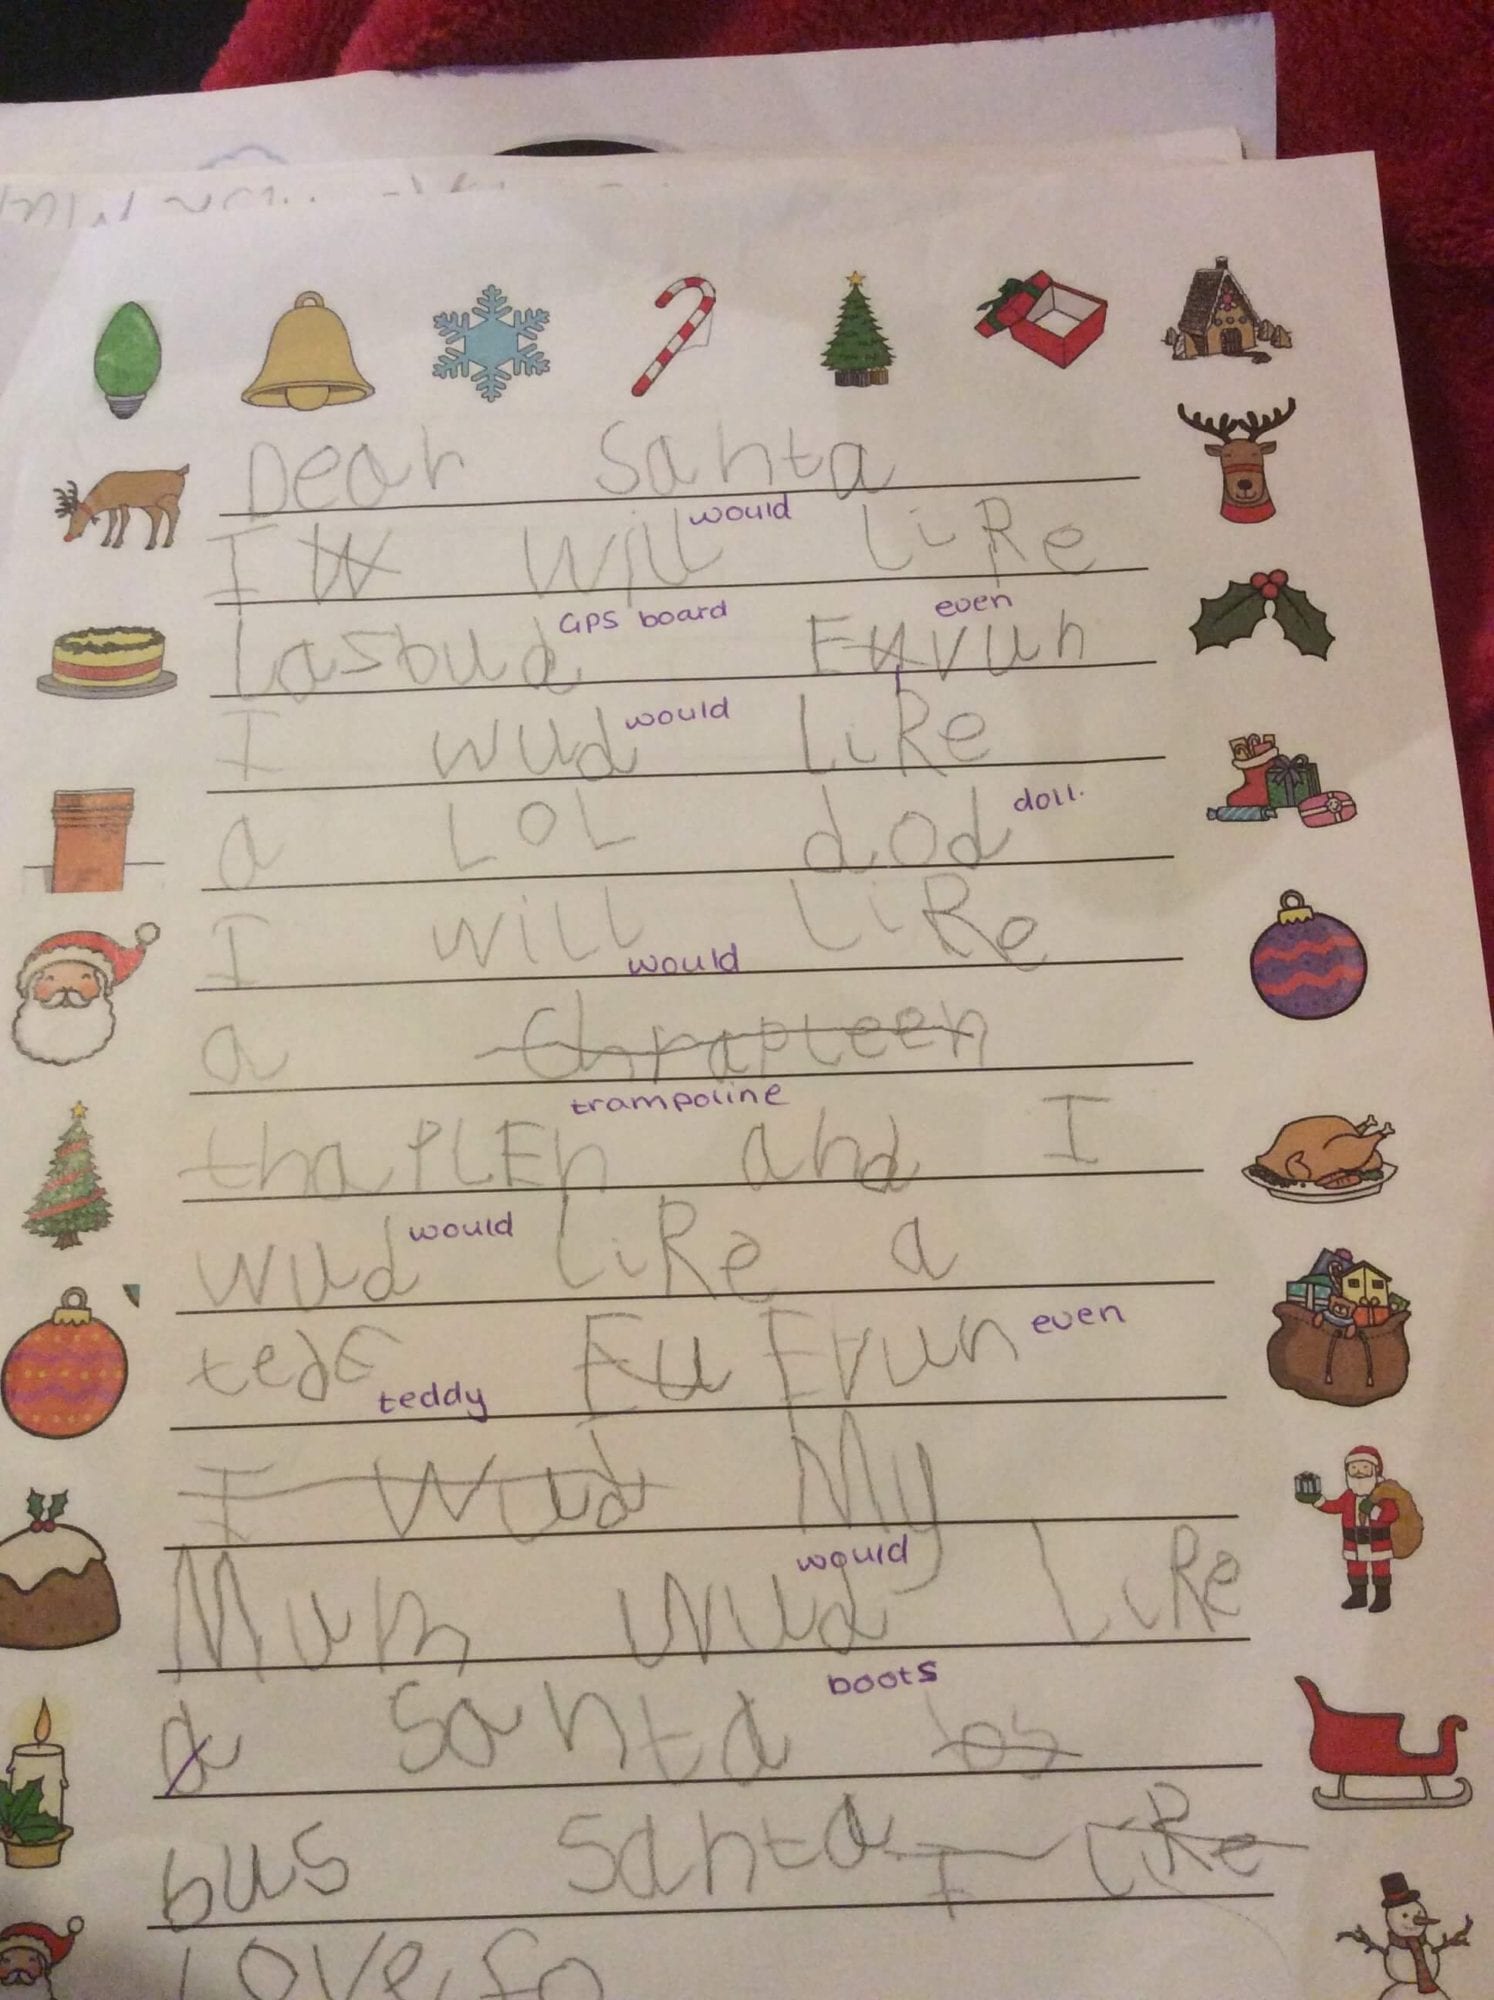 Dear Santa
I W will would like
Lasbud GPS board Euvun even
I wud would like
a LOL dod doll.
I will would like
a
trampoline
thaPLEn and I
wud would like a
tedE teddy Eu Evun even
I wud My
Mum wud would like
a Santa boots bos
bus Santa I like
Love